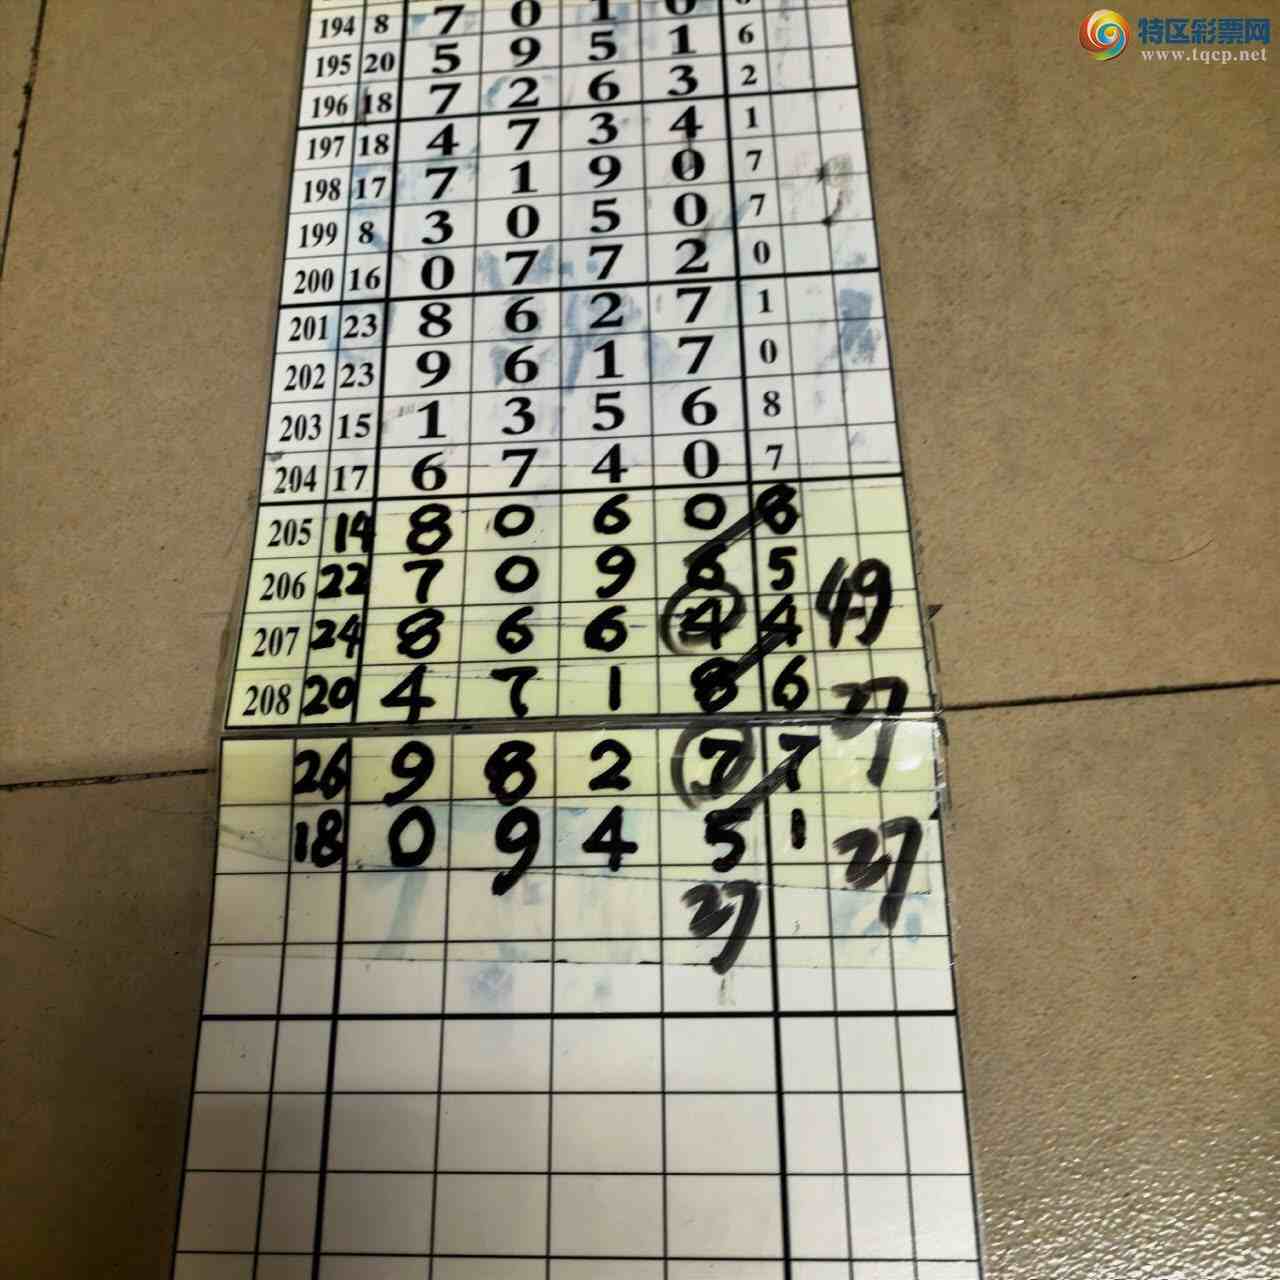 特区彩票网
www.tqcp.net
194 8 7 0 1 0
195 20 5 9 5 1 6
196 18 7 2 6 3 2
197 18 4 7 3 4 1
198 17 7 1 9 0 7
199 8 3 0 5 0 7
200 16 0 7 7 2 0
201 23 8 6 2 7 1
202 23 9 6 1 7 0
203 15 1 3 5 6 8
204 17 6 7 4 0 7
205 14 8 0 6 0 8
206 22 7 0 9 6 5
207 24 8 6 6 4 4 49
208 20 4 7 1 8 6 27
26 9 8 2 7 7
18 0 9 4 5 1 27
27